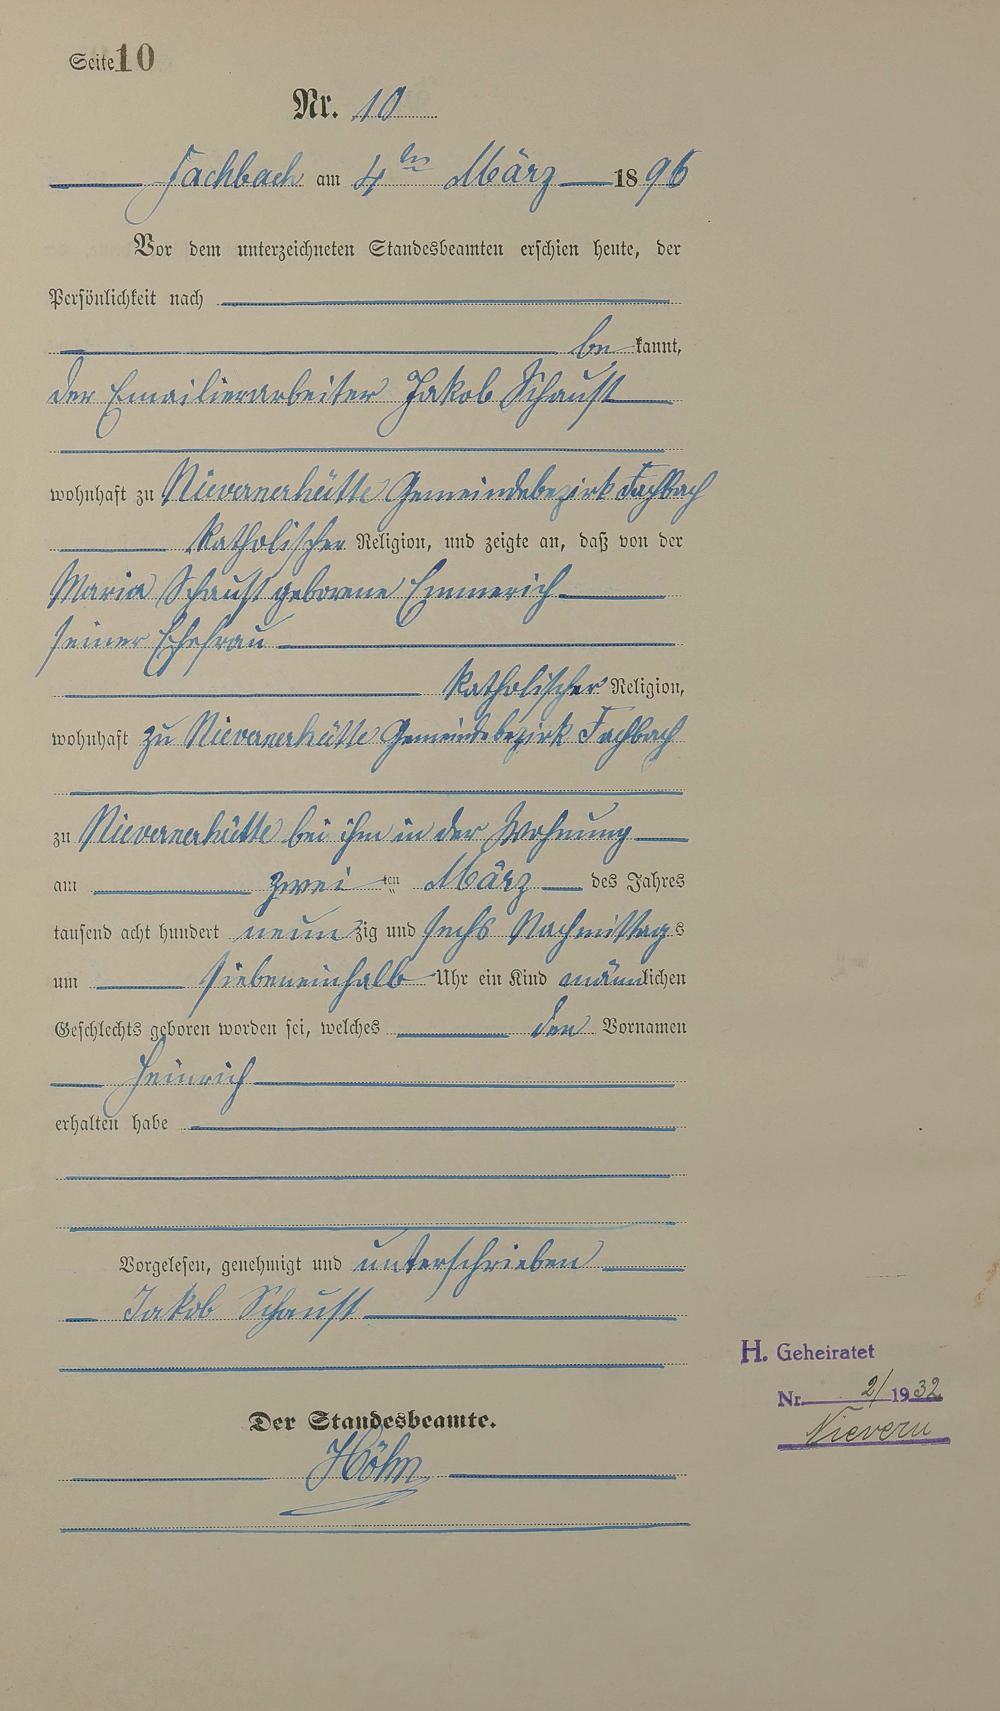 Seite 10
Nr. 10
Fachbach am 4ten März 1896
Vor dem unterzeichneten Standesbeamten erschien heute, der
Persönlichkeit nach
bekannt,
der Emailierarbeiter Jakob Schaust
wohnhaft zu Nievernerhütte Gemeindebezirk Fachbach
katholischer Religion, und zeigte an, daß von der
Maria Schaust geborene Emmerich
seiner Ehefrau
katholischer Religion,
wohnhaft zu Nievernerhütte Gemeindebezirk Fachbach
zu Nievernerhütte bei ihm in der Wohnung
am zweiten März des Jahres
tausend acht hundert neunzig und sechs Nachmittags
um siebeneinhalb Uhr ein Kind männlichen
Geschlechts geboren worden sei, welches den Vornamen
Heinrich
erhalten habe
Vorgelesen, genehmigt und unterschrieben
Jakob Schaust
H. Geheiratet
Nr. 2/1932
Nievern
Der Standesbeamte.
Höhn